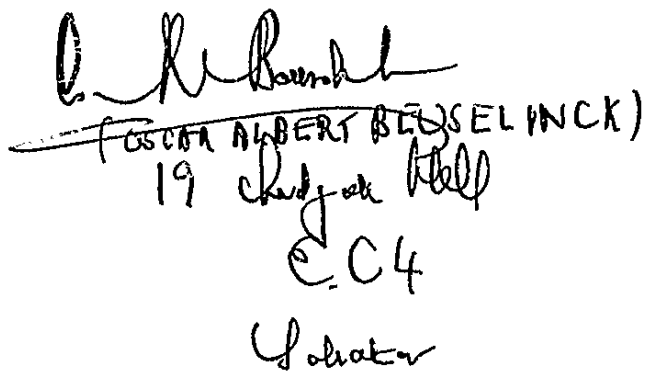 (OSCAR ALBERT BEUSELINCK)
19 Ludgate Hill
E.C4
Solicitor